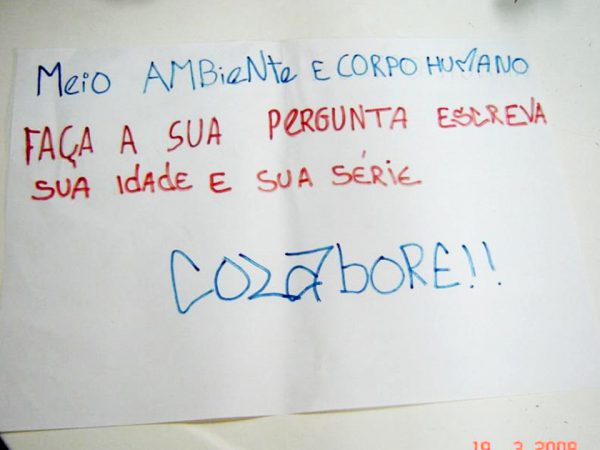 Meio AMBieNte E CORPO HUMANO
FAÇA A SUA PERGUNTA ESCREVA
SUA IDADE E SUA SÉRIE
COLABORE!!
19 3 2008